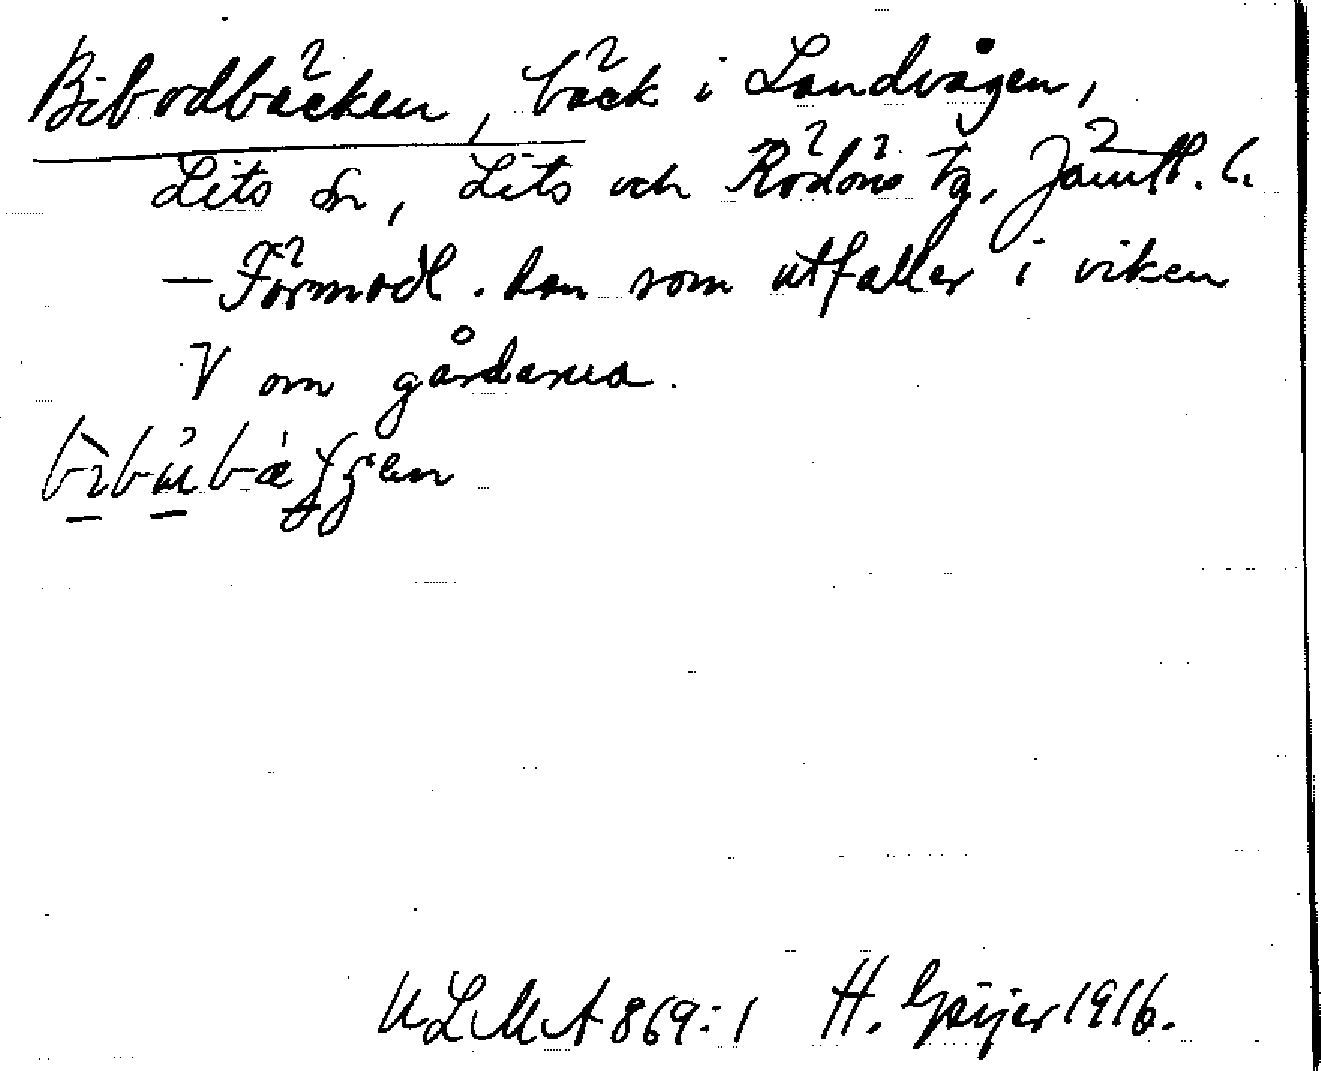 Bibodbäcken, bäck i Landvågen,
Lits sn, Lits och Rödöns tg, Jämtl. l.
— Förmodl. den som utfaller i viken
V om gårdarna.
U L M A 869:1 H. Geijer 1916.